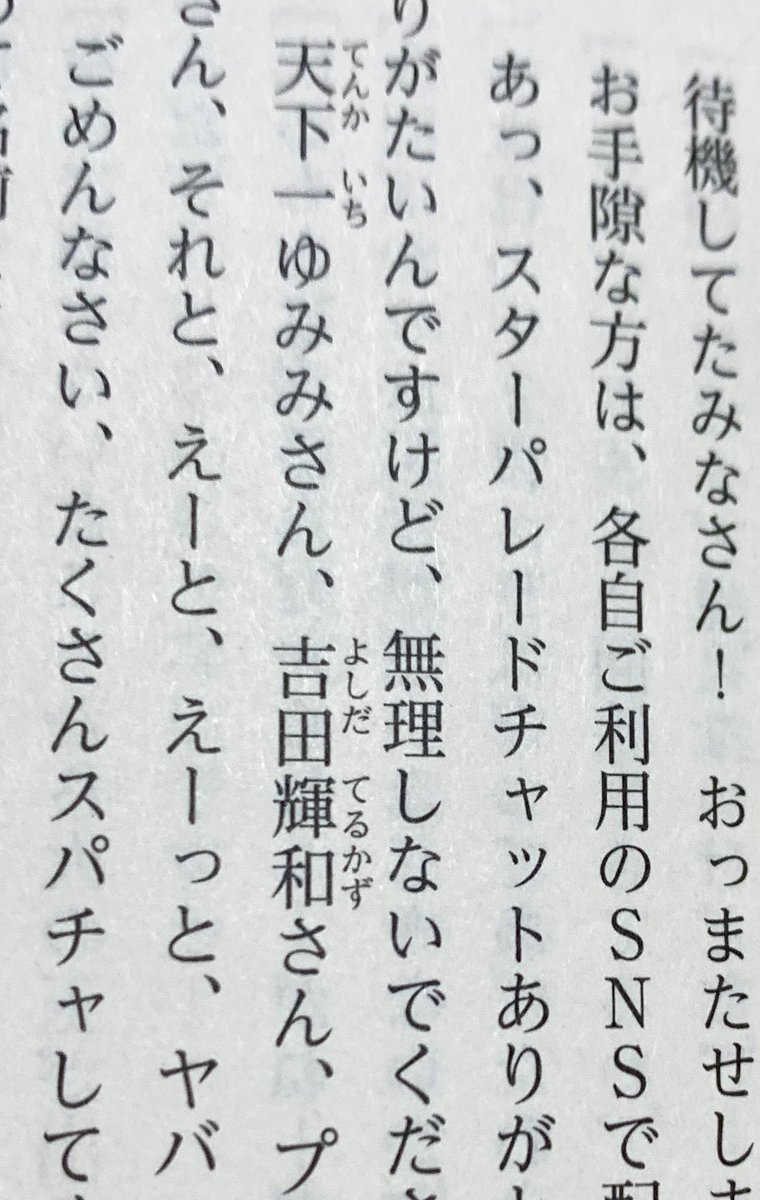 待機してたみなさん！　おっまたせしま
お手隙な方は、各自ご利用のＳＮＳで配
あっ、スターパレードチャットありが
りがたいんですけど、無理しないでくださ
天下一ゆみみさん、吉田輝和さん、プ
てんか いち よしだ てるかず
さん、それと、えーと、えーっと、ヤバ
ごめんなさい、たくさんスパチャして